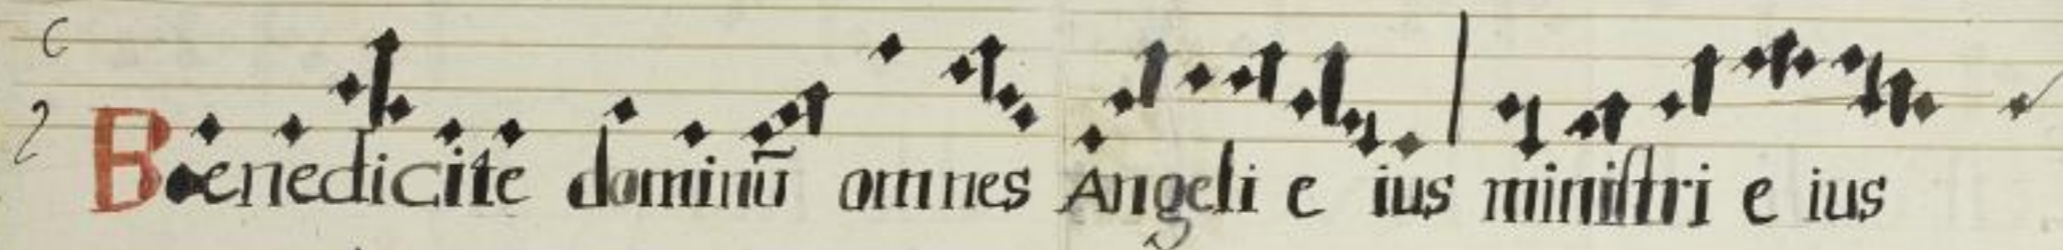 Benedicite dominū omnes Angeli e ius miniſtri e ius